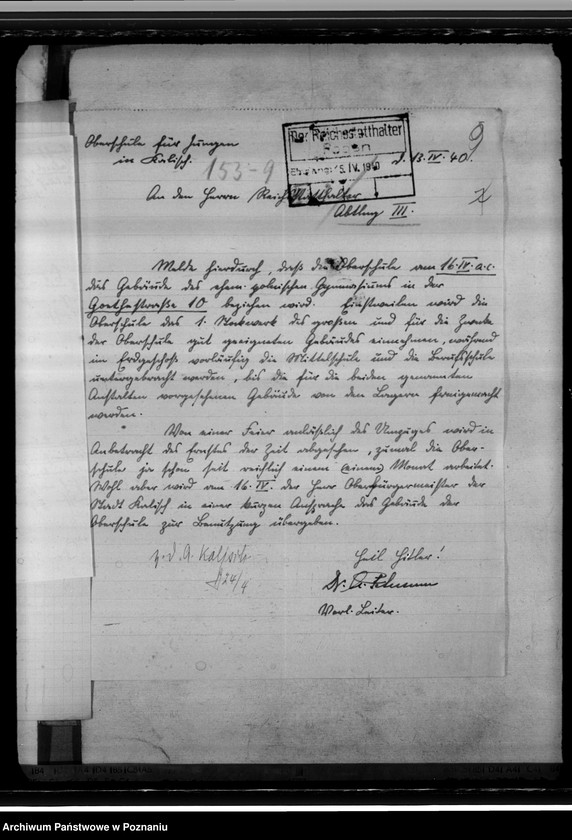 9
Oberschule für Jungen
in Kalisch.
153-9
Der Reichsstatthalter
Posen
Eingang: 15. IV. 1940
d. 13. IV. 40.
An den Herrn Reichsstatthalter
Abtlng III.
Melde hierdurch, daß die Oberschule am 16. IV. a.c.
das Gebäude des ehem. polnischen Gymnasiums in der
Goethestrasse 10 beziehen wird. Einstweilen wird die
Oberschule das 1. Stockwerk des großen und für die Zwecke
der Oberschule gut geeigneten Gebäudes einnehmen, während
im Erdgeschoß vorläufig die Mittelschule und die Berufsschule
untergebracht werden, bis die für die beiden genannten
Anstalten vorgesehenen Gebäude von den Lagern freigemacht
werden.
Von einer Feier anläßlich des Umzuges wird in
Anbetracht des Ernstes der Zeit abgesehen, zumal die Ober-
schule ja schon seit reichlich einem (einem) Monat arbeitet.
Wohl aber wird am 16. IV. der Herr Oberbürgermeister der
Stadt Kalisch in einer kurzen Ansprache das Gebäude der
Oberschule zur Benützung übergeben.
z. d. A. Kalisch
24/4
Heil Hitler!
Dr. A.
Vorl. Leiter.
Archiwum Państwowe w Poznaniu